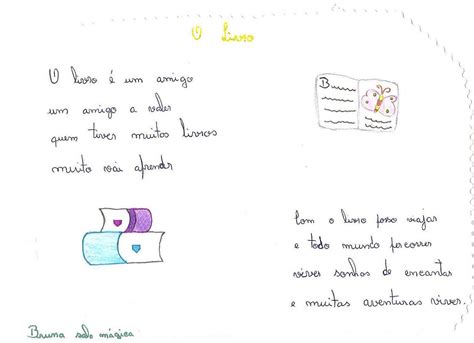 O Livro
O livro é um amigo
um amigo a valer
quem tiver muitos livros
muito vai aprender
Bruna
Com o livro posso viajar
e todo mundo percorrer
viver sonhos de encantar
e muitas aventuras viver.
Bruna mágica